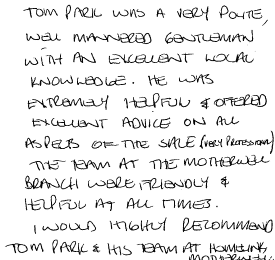 TOM PARK WAS A VERY POLITE,
WELL MANNERED GENTLEMAN
WITH AN EXCELLENT LOCAL
KNOWLEDGE. HE WAS
EXTREMELY HELPFUL & OFFERED
EXCELLENT ADVICE ON ALL
ASPECTS OF THE SALE (VERY PROFESSIONAL)
THE TEAM AT THE MOTHERWELL
BRANCH WERE FRIENDLY &
HELPFUL AT ALL TIMES.
I WOULD HIGHLY RECOMMEND
TOM PARK & HIS TEAM AT HOMELINK
MOTHERWELL